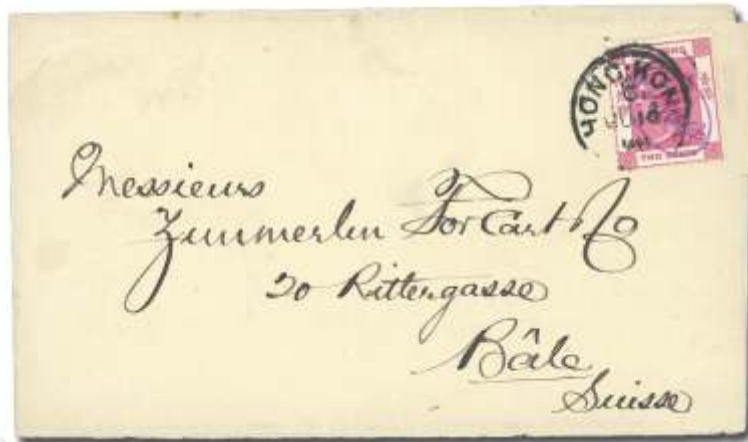 HONG KON
C
JU 16
TWO CENTS
Messieurs
Zimmerlin Forcart & Co
20 Rittergasse
Bâle
Suisse